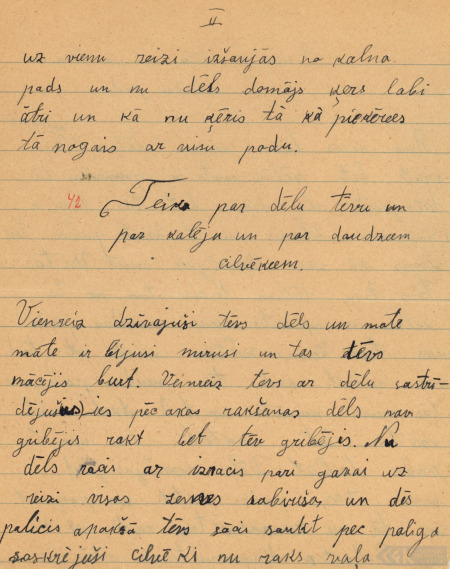 II
uz vienu reizi izšaujās no kalna
pads un nu dēls domājs ķers labi
ātri un kā nu ķēris tā kā pieķērees
tā nogais ar visu podu.
42
Teika par dēlu tēvu un
par kalēju un par daudzeem
cilvēkeem.
Vienreiz dzīvajuši tēvs dēls un māte
māte ir bijusi mirusi un tas tēvs
mācējis burt. Veinreiz tēvs ar dēlu sastrī-
dējušies pēc akas rakšanas dēls nav
gribējis rakt bet tēv gribējis. Nu
dēls racis ar izracis pari gavai uz
reizi visas zemes sabirušas un dēs
palicis apakšā tēvs sācis saukt pēc palīga
saskrējuši cilvēki nu raks vaļa